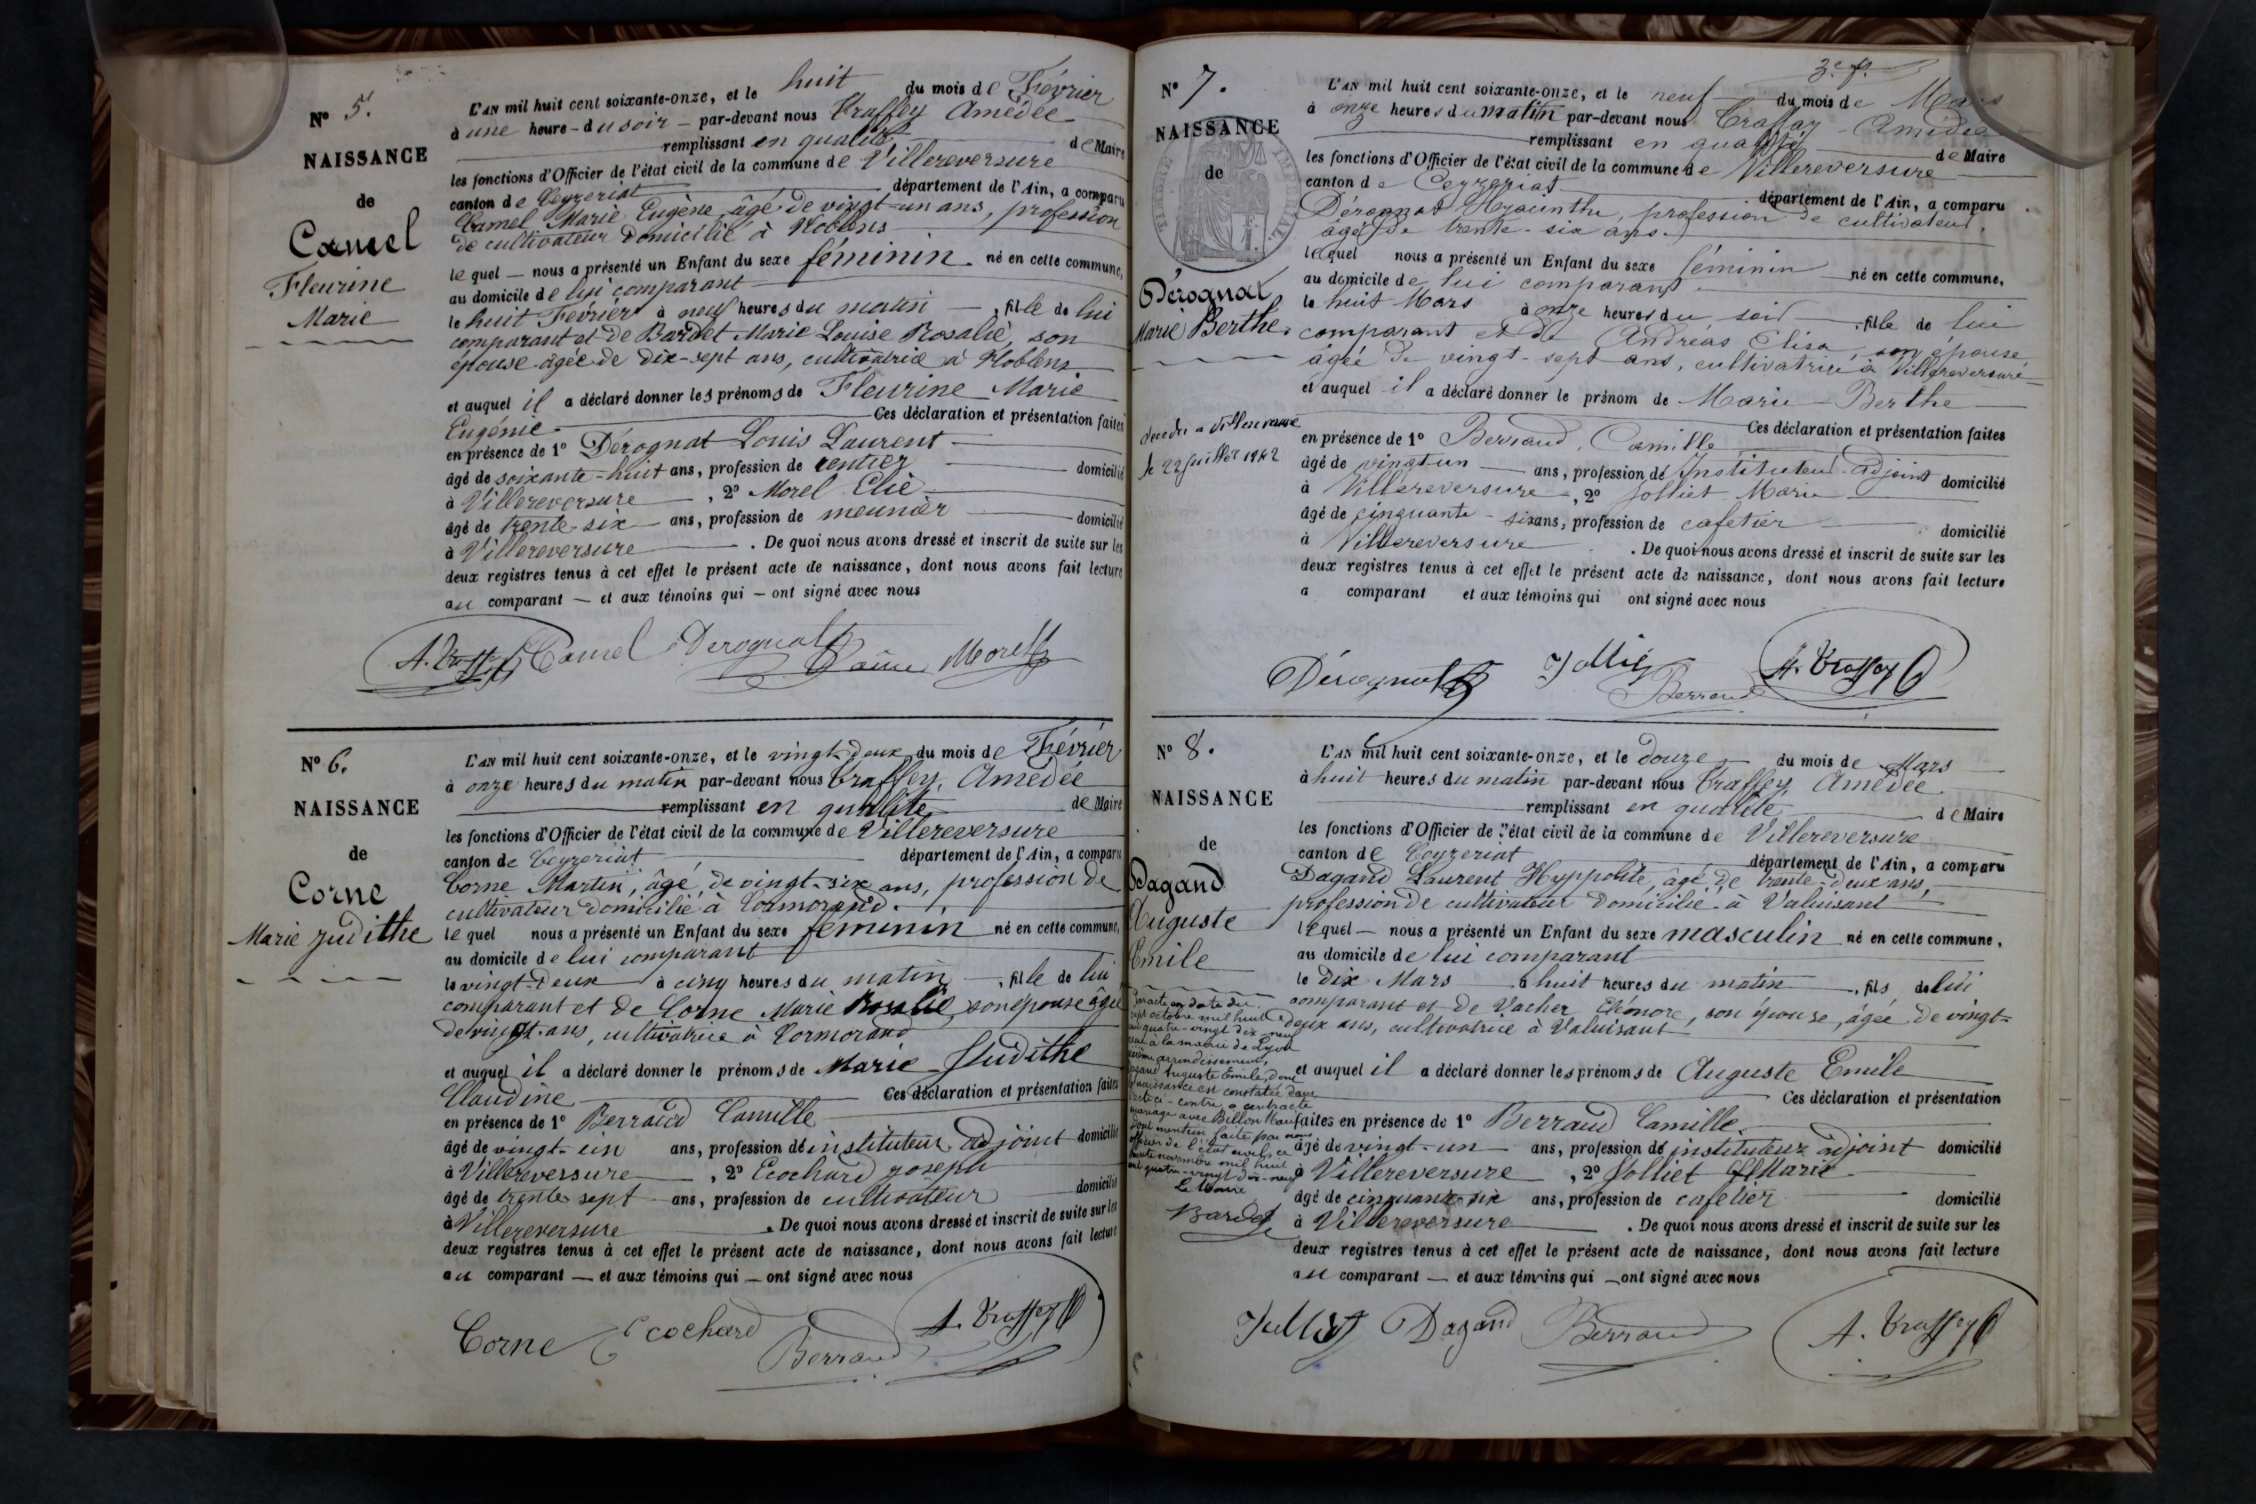 N° 5.
NAISSANCE
de
Camel
Fleurine
Marie
L'AN mil huit cent soixante-onze, et le huit du mois de Février
à une heure du soir par-devant nous Traffey Amédée
remplissant en qualité de Maire
les fonctions d'Officier de l'état civil de la commune de Villereversure
canton de Ceyzeriat département de l'Ain, a comparu
Camel Marie Eugène, âgé de vingt-un ans, profession
de cultivateur domicilié à Noblens
lequel nous a présenté un Enfant du sexe féminin né en cette commune,
au domicile de lui comparant
le huit Février à neuf heures du matin, fille de lui
comparant et de Bardet Marie Louise Rosalie, son
épouse âgée de dix-sept ans, cultivatrice à Noblens
et auquel il a déclaré donner les prénoms de Fleurine Marie
Eugénie Ces déclaration et présentation faites
en présence de 1° Dérognat Louis Laurent
âgé de soixante-huit ans, profession de rentier domicilié
à Villereversure, 2° Morel Elie
âgé de trente-six ans, profession de meunier domicilié
à Villereversure. De quoi nous avons dressé et inscrit de suite sur les
deux registres tenus à cet effet le présent acte de naissance, dont nous avons fait lecture
au comparant et aux témoins qui ont signé avec nous
A. Traffey Camel Derognat aîné Morel
N° 6.
NAISSANCE
de
Corne
Marie Judithe
L'AN mil huit cent soixante-onze, et le vingt-deux du mois de Février
à onze heures du matin par-devant nous Traffey, Amédée
remplissant en qualité de Maire
les fonctions d'Officier de l'état civil de la commune de Villereversure
canton de Ceyzeriat département de l'Ain, a comparu
Corne Martin, âgé de vingt-six ans, profession de
cultivateur domicilié à Cormorand.
lequel nous a présenté un Enfant du sexe féminin né en cette commune,
au domicile de lui comparant
le vingt-deux à cinq heures du matin, fille de lui
comparant et de Corne Marie Rosalie, son épouse âgée
de vingt ans, cultivatrice à Cormorand
et auquel il a déclaré donner le prénoms de Marie Judithe
Claudine Ces déclaration et présentation faites
en présence de 1° Berraud Camille
âgé de vingt-un ans, profession de instituteur adjoint domicilié
à Villereversure, 2° Ecochard joseph
âgé de trente sept ans, profession de cultivateur domicilié
à Villereversure. De quoi nous avons dressé et inscrit de suite sur les
deux registres tenus à cet effet le présent acte de naissance, dont nous avons fait lecture
au comparant et aux témoins qui ont signé avec nous
Corne Ecochard Berraud A. Traffey
3e f.
N° 7.
NAISSANCE
de
Dérognat
Marie Berthe
décédée à Villeurbanne
le 22 Juillet 1942
L'AN mil huit cent soixante-onze, et le neuf du mois de Mars
à onze heures du matin par-devant nous Traffey Amédée
remplissant en qualité de Maire
les fonctions d'Officier de l'état civil de la commune de Villereversure
canton de Ceyzeriat département de l'Ain, a comparu
Dérognat Hyacinthe, profession de cultivateur,
âgé de trente-six ans.
lequel nous a présenté un Enfant du sexe féminin né en cette commune,
au domicile de lui comparant
le huit Mars à onze heures du soir, fille de lui
comparant et de Andréas Elisa, son épouse,
âgée de vingt-sept ans, cultivatrice à Villereversure
et auquel il a déclaré donner le prénom de Marie Berthe
Ces déclaration et présentation faites
en présence de 1° Berraud, Camille
âgé de vingt-un ans, profession de Instituteur-adjoint domicilié
à Villereversure, 2° Jolliet Marie
âgé de cinquante-six ans, profession de cafetier domicilié
à Villereversure. De quoi nous avons dressé et inscrit de suite sur les
deux registres tenus à cet effet le présent acte de naissance, dont nous avons fait lecture
a comparant et aux témoins qui ont signé avec nous
Dérognat Jolliet Berraud A. Traffey
N° 8.
NAISSANCE
de
Dagand
Auguste
Emile
Par acte en date du
sept octobre mil huit
cent quatre-vingt dix-neuf
à la mairie de Lyon
arrondissement,
Dagand Auguste Emile, dont
naissance est constatée dans
l'acte ci-contre a contracté
mariage avec Billon
Dont mention faite par nous
officier de l'état civil, ce
trente novembre mil huit
cent quatre-vingt dix-neuf
Le Maire
Bardet
L'AN mil huit cent soixante-onze, et le douze du mois de Mars
à huit heures du matin par-devant nous Traffey Amédée
remplissant en qualité de Maire
les fonctions d'Officier de l'état civil de la commune de Villereversure
canton de Ceyzeriat département de l'Ain, a comparu
Dagand Laurent Hyppolite, âgé de trente-deux ans,
profession de cultivateur domicilié à Valuisant
lequel nous a présenté un Enfant du sexe masculin né en cette commune,
au domicile de lui comparant
le dix Mars à huit heures du matin, fils de lui
comparant et de Vacher Eléonore, son épouse, âgée de vingt-
deux ans, cultivatrice à Valuisant
et auquel il a déclaré donner les prénoms de Auguste Emile
Ces déclaration et présentation
faites en présence de 1° Berraud Camille
âgé de vingt-un ans, profession de instituteur adjoint domicilié
à Villereversure, 2° Jolliet Marie
âgé de cinquante-six ans, profession de cafetier domicilié
à Villereversure. De quoi nous avons dressé et inscrit de suite sur les
deux registres tenus à cet effet le présent acte de naissance, dont nous avons fait lecture
au comparant et aux témoins qui ont signé avec nous
Jolliet Dagand Berraud A. Traffey